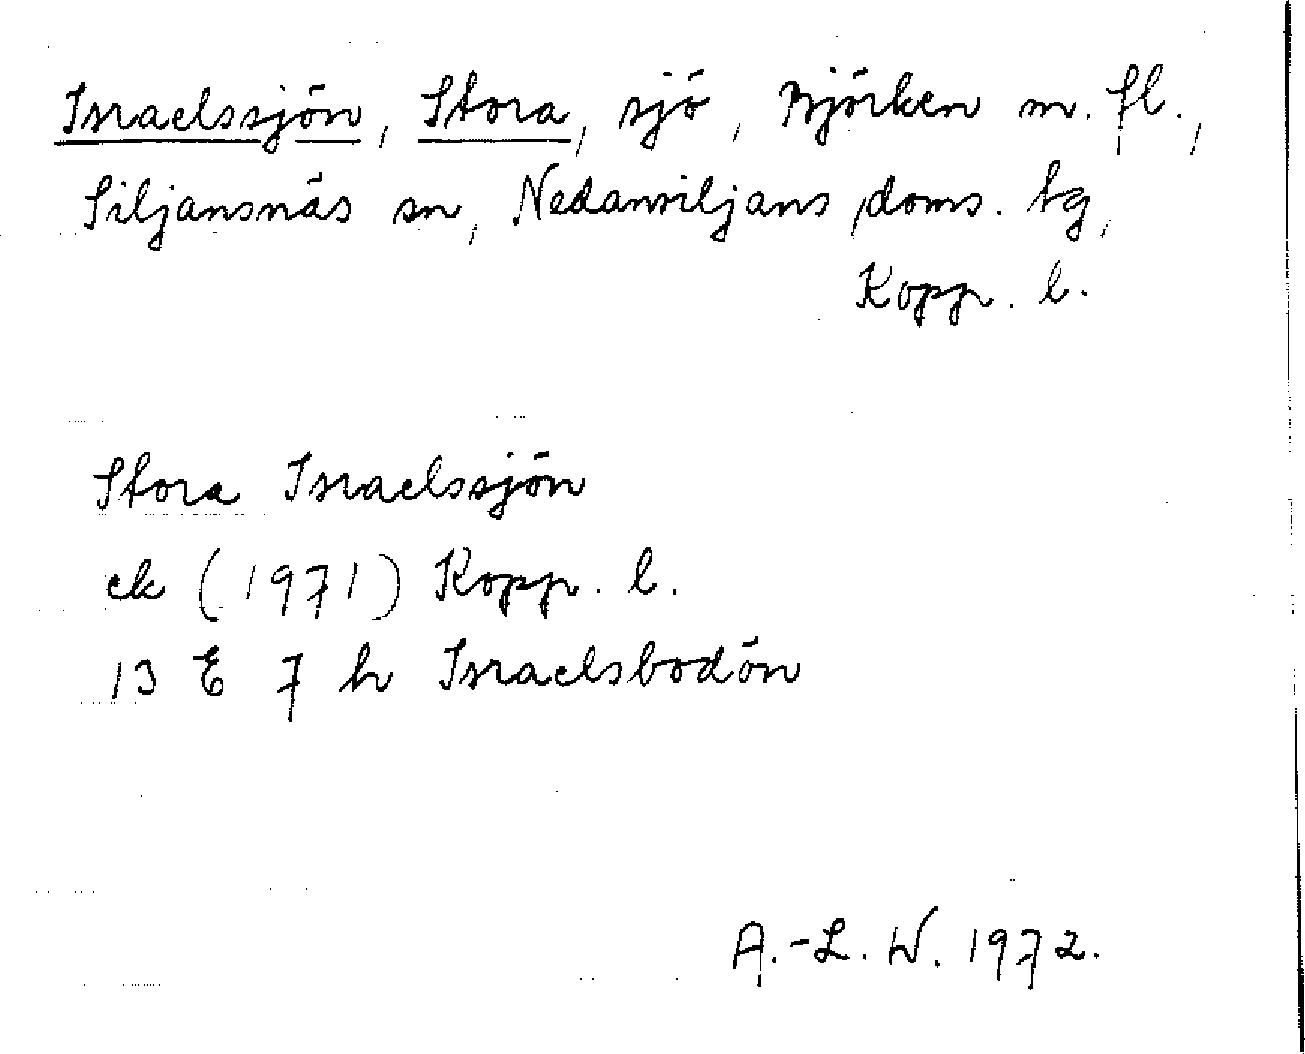 Israelssjön, Stora, sjö, Björken m. fl.,
Siljansnäs sn, Nedansiljans doms. tg,
Kopp. l.
Stora Israelssjön
ek (1971) Kopp. l.
13 E 7 h Israelsbodön
A.-L. W. 1972.